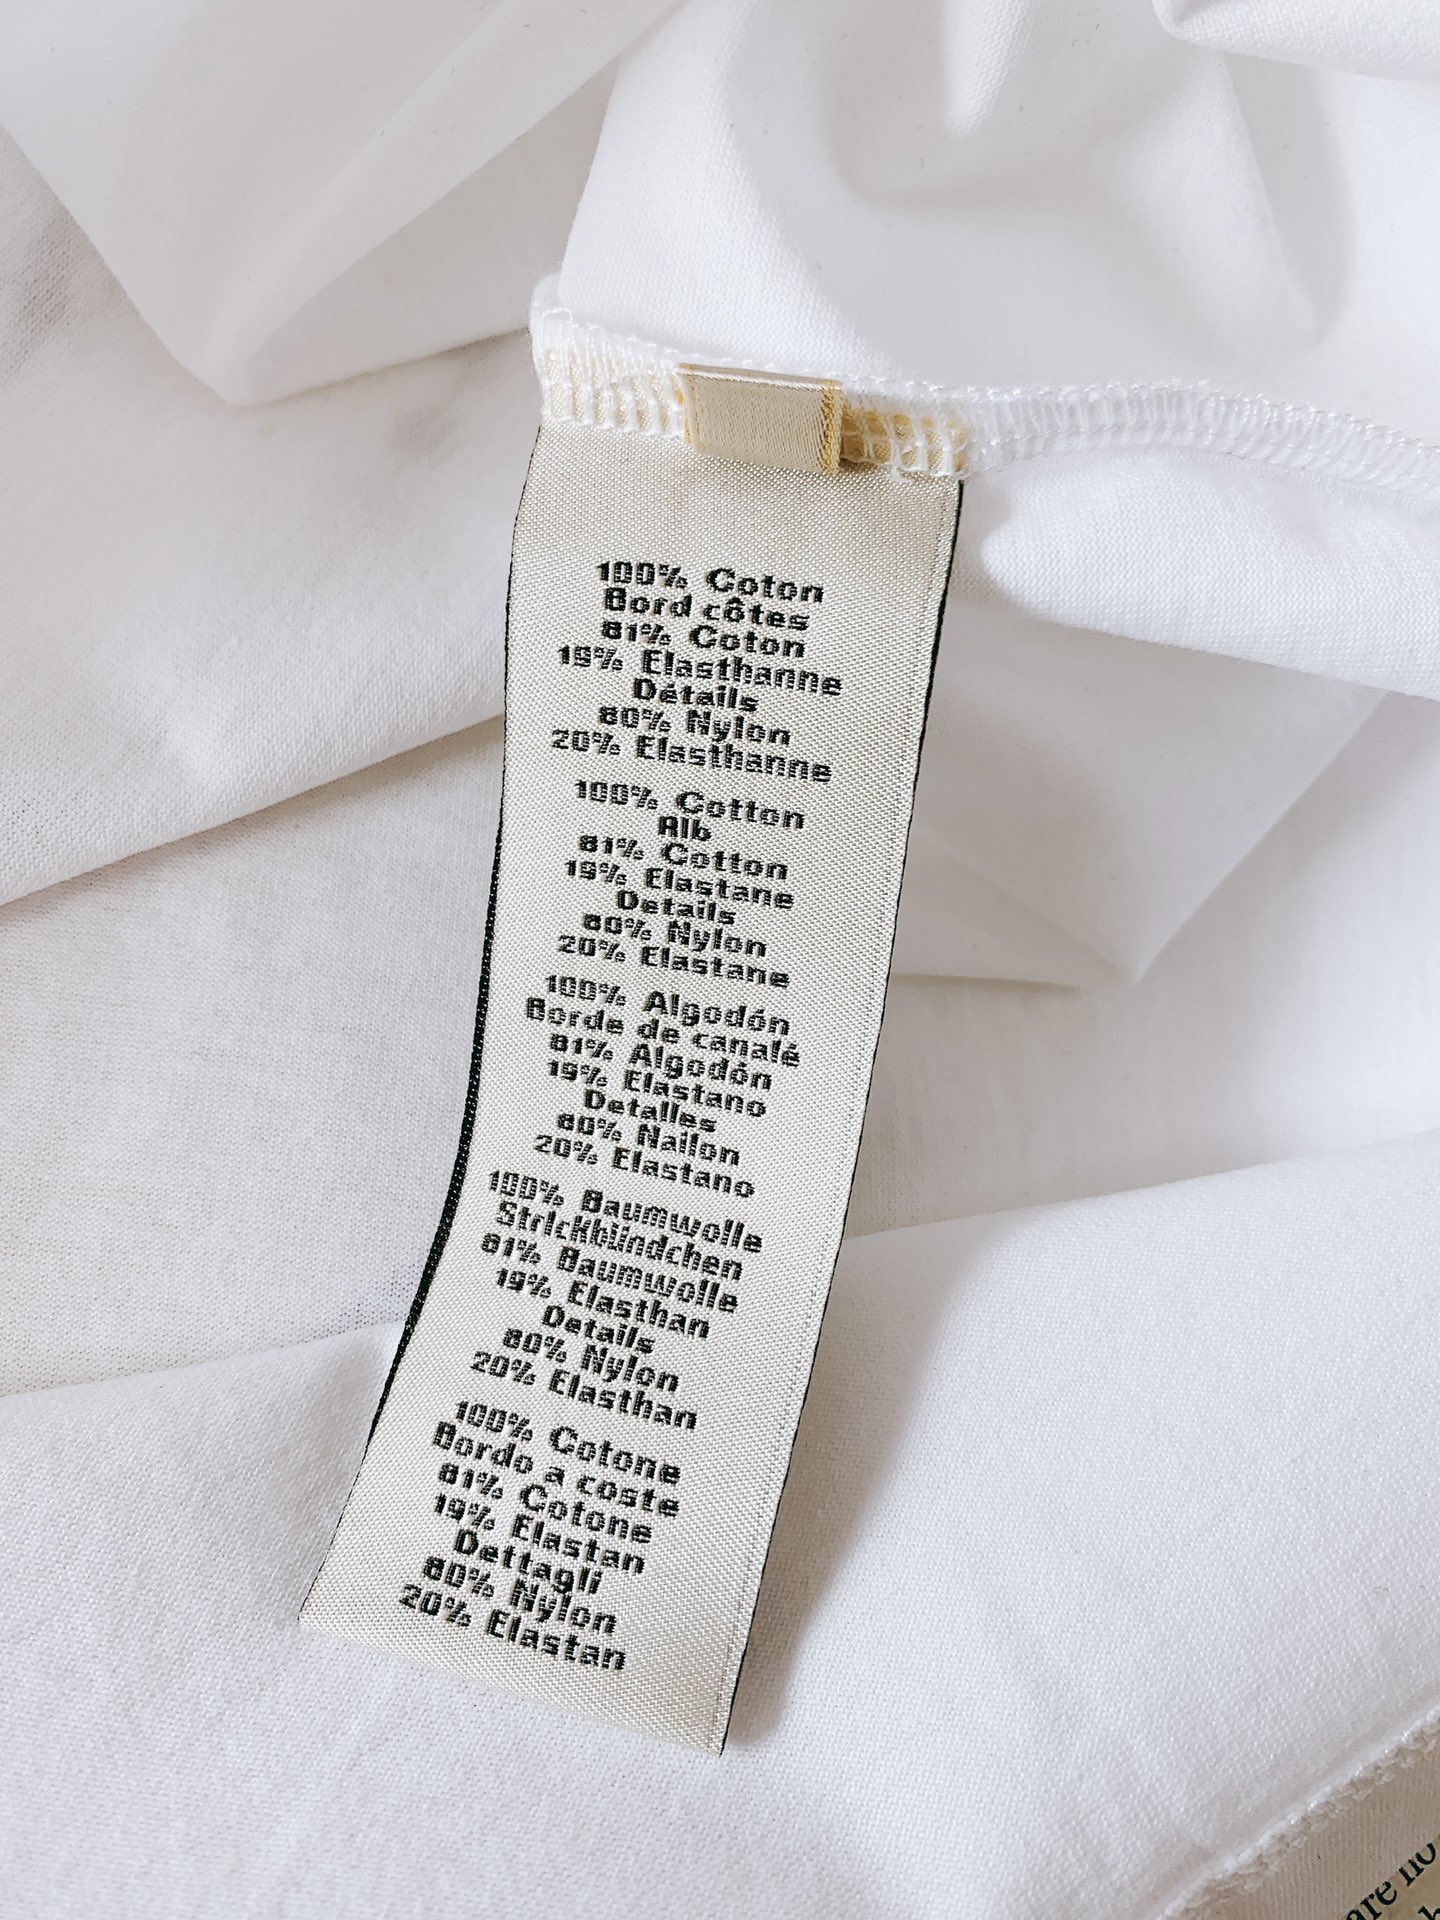 100% Coton
Bord côtes
81% Coton
19% Elasthanne
Détails
80% Nylon
20% Elasthanne
100% Cotton
Rib
81% Cotton
19% Elastane
Details
80% Nylon
20% Elastane
100% Algodón
Borde de canalé
81% Algodón
19% Elastano
Detalles
80% Nailon
20% Elastano
100% Baumwolle
Strickbündchen
81% Baumwolle
19% Elasthan
Details
80% Nylon
20% Elasthan
100% Cotone
Bordo a coste
81% Cotone
19% Elastan
Dettagli
80% Nylon
20% Elastan